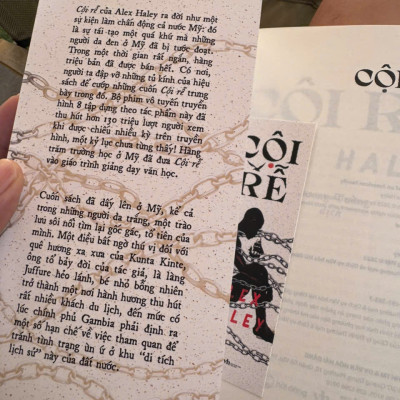 Cội rễ của Alex Haley ra đời như một
sự kiện làm chấn động cả nước Mỹ: đó
là sự tái tạo một quá khứ mà những
người da đen ở Mỹ đã bị tước đoạt.
Trong một thời gian rất ngắn, hàng
triệu bản đã được bán hết. Có nơi,
người ta đập vỡ những tủ kính của hiệu
sách để cướp những cuốn Cội rễ trưng
bày trong đó. Bộ phim vô tuyến truyền
hình 8 tập dựng theo tác phẩm này đã
thu hút hơn 130 triệu lượt người xem
khi được chiếu nhiều kỳ trên truyền
hình, một kỷ lục chưa từng thấy! Hàng
trăm trường học ở Mỹ đã đưa Cội rễ
vào giáo trình giảng dạy văn học.
Cuốn sách đã dấy lên ở Mỹ, kể cả
trong những người da trắng, một trào
lưu sôi nổi tìm lại gốc gác, tổ tiên của
mình. Một điều bất ngờ thú vị đối với
quê hương xa xưa của Kunta Kinte,
ông tổ bảy đời của tác giả, là làng
Juffure hẻo lánh, bé nhỏ bỗng nhiên
trở thành một nơi hành hương thu hút
rất nhiều khách du lịch, đến mức có
lúc chính phủ Gambia phải định ra
một số hạn chế về việc tham quan để
tránh tình trạng ùn ứ ở khu "di tích
lịch sử" này của đất nước.
CỘI
RỄ
EX
LEY
CỘI